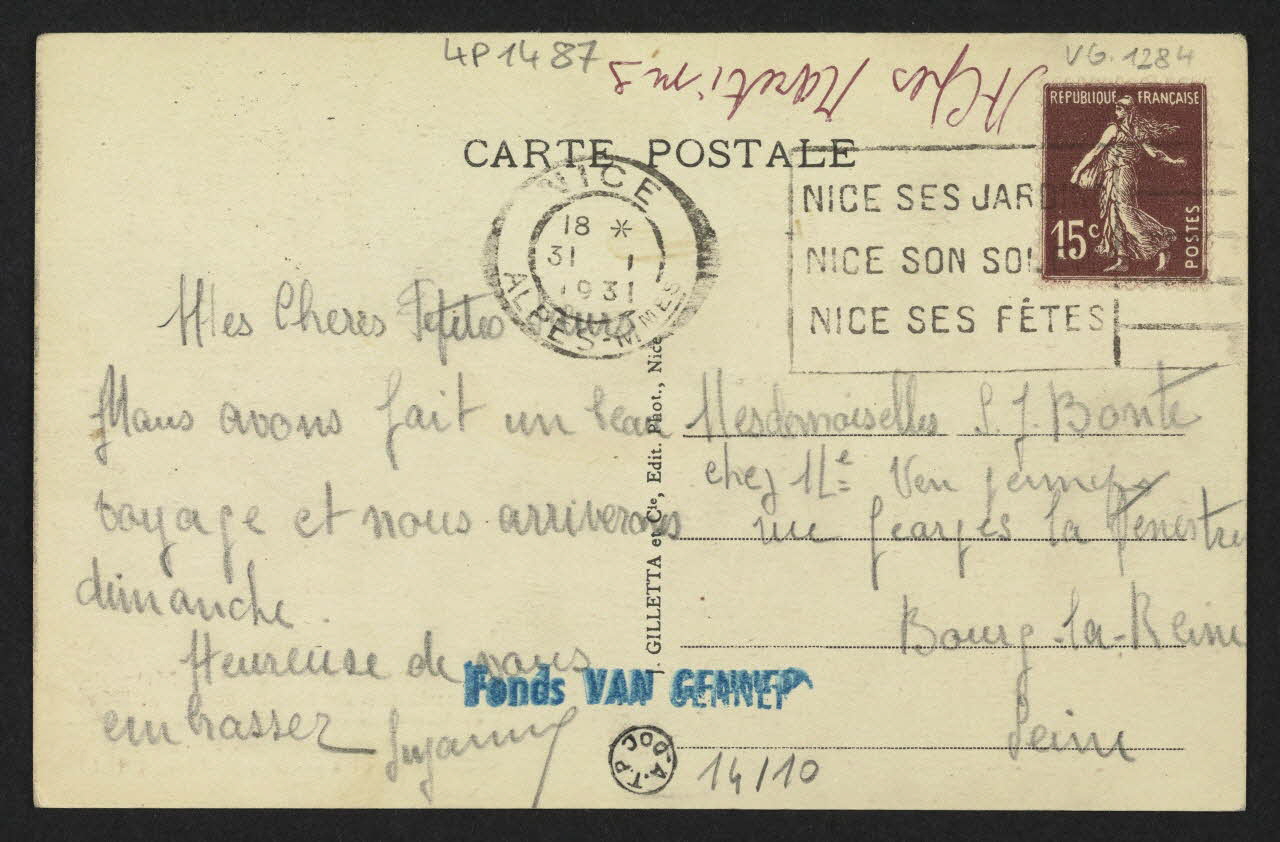 4P1487
VG.1284
Alpes Maritimes
RÉPUBLIQUE FRANÇAISE
15c
POSTES
CARTE POSTALE
NICE
18 *
31 1
1931
ALPES-MMES
NICE SES JARD
NICE SON SOL
NICE SES FÊTES
Mes Cheres Petites Sœurs
Nous avons fait un beau
voyage et nous arriverons
dimanche.
Heureuse de vous
embrasser Suzanne
J. GILLETTA et Cie, Edit. Phot., Nice
Mesdemoiselles S. J. Bonte
chez Me Van Gennep
rue Georges la Fenestre
Bourg-la-Reine
Seine
Fonds VAN GENNEP
DOC A.T.P
14/10